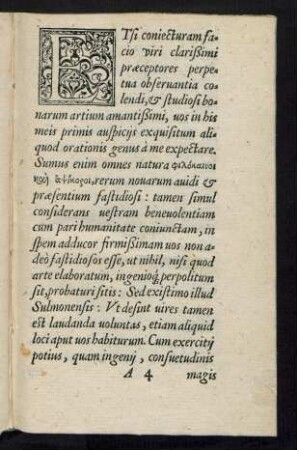 ETsi coniecturam fa-
cio viri clarißimi
præceptores perpe-
tua obseruantia co-
lendi,& studiosi bo-
narum artium amantißimi, uos in his
meis primis auspicijs exquisitum ali-
quod orationis genus à me expectare.
Sumus enim omnes natura φιλόκαινοι
καὶ ἁψίκοροι, rerum nouarum auidi &
præsentium fastidiosi : tamen simul
considerans uestram beneuolentiam
cum pari humanitate coniunctam, in
spem adducor firmißimam uos non a-
deò fastidiosos esse, ut nihil, nisi quod
arte elaboratum, ingenioq́; perpolitum
sit, probaturi sitis : Sed existimo illud
Sulmonensis : Vt desint uires tamen
est laudanda uoluntas, etiam aliquid
loci aput uos habiturum. Cum exercitij
potius, quam ingenij, consuetudinis
A 4 magis